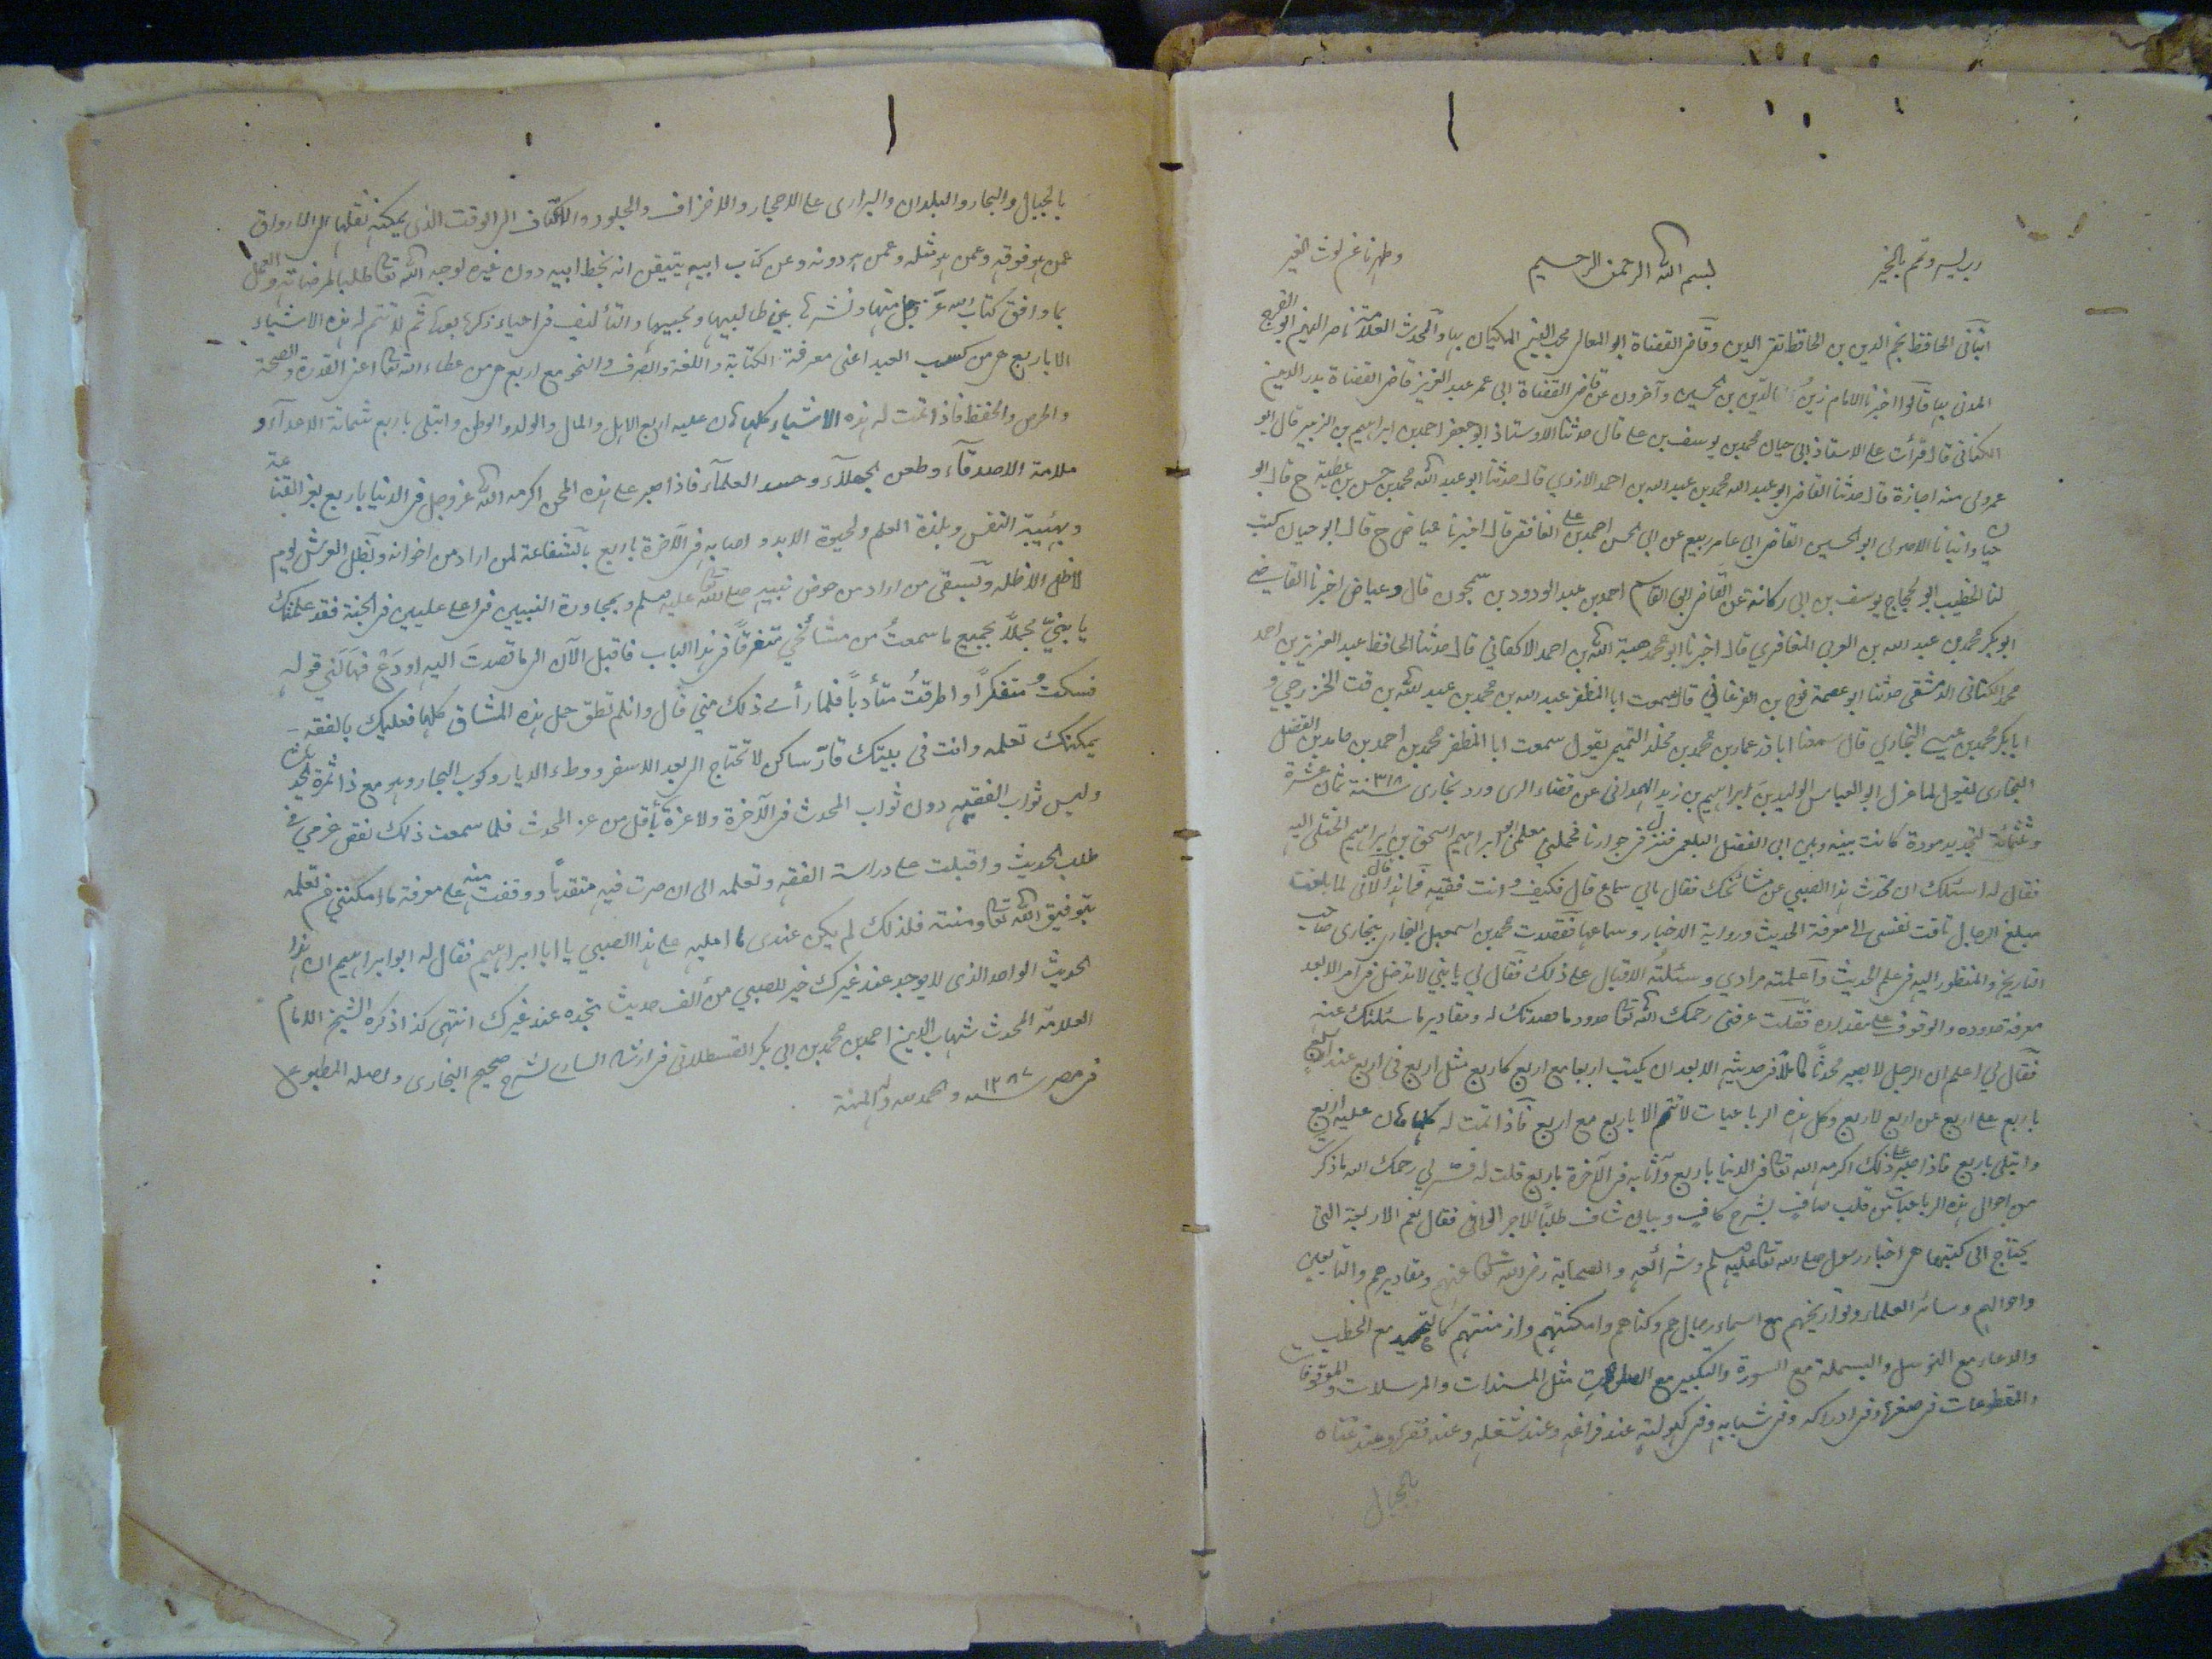 رب يسر وتمم بالخير
بسم الله الرحمن الرحيم
وطهرنا عن لوث الغير
انبأنى الحافظ نجم الدين بن الحافظ تقى الدين وقاضى القضاة ابو المعالى محب الدين المكيان بها والمحدث العلامة ناصر الدين ابو الفرج
المدنى بها قالوا اخبرنا الامام زين الدين بن الحسين وآخرون عن قاضى القضاة ابى عمر عبد العزيز قاضى القضاة بدر الدين
الكنانى قال قرأت على الاستاذ ابى حيان محمد بن يوسف بن على قال حدثنا الاستاذ ابو جعفر احمد بن ابراهيم بن الزبير قال ابو
عمرو لى منه اجازة قال حدثنا القاضى ابو عبد الله محمد بن عبد الله بن احمد الازدي قال حدثنا ابو عبد الله محمد بن حسن بن عطية ح قال ابو
حيان وانبأنا الاصولى ابو الحسين القاضى ابى عامر ربيع عن ابى الحسن احمد بن على الغافقى قال اخبرنا عياض ح قال ابو حيان كتب
لنا الخطيب ابو الحجاج يوسف بن ابى ركانة عن القاضى ابى القاسم احمد بن عبد الودود بن سمجون قال وعياض اخبرنا القاضى
ابو بكر محمد بن عبد الله بن العربى المعافري قال اخبرنا ابو محمد هبة الله بن احمد الاكفاني قال حدثنا الحافظ عبد العزيز بن احمد
محمد الكتانى الدمشقى حدثنا ابو عصمة نوح بن الفرغاني قال سمعت ابا المظفر عبد الله بن محمد بن عبد الله بن قت الخزرجي و
ابا بكر محمد بن عيسى البخاري قال سمعنا ابا ذر عمار بن محمد بن مخلد التميمى يقول سمعت ابا المظفر محمد بن احمد بن حامد بن الفضل
البخارى يقول لما عزل ابو العباس الوليد بن ابراهيم بن زيد الهمدانى عن قضاء الرى ورد بخارى ٣١٨ سنة ثمان عشرة
وثلثمائة لتجديد مودة كانت بينه وبين ابى الفضل البلعمى فنزل فى جوارنا فحملني معلمى ابو ابراهيم اسحق بن ابراهيم الختلى اليه
فقال له اسئلك ان تحدث هذا الصبي عن مشائخك فقال مالي سماع قال فكيف وانت فقيه فما هذا قال لانى لما بلغت
مبلغ الرجال تاقت نفسى الى معرفة الحديث ورواية الاخبار وسماعها فقصدت محمد بن اسمعيل البخارى ببخارى صاحب
التاريخ والمنظور اليه فى علم الحديث وأعلمته مرادي وسئلته الاقبال على ذلك فقال لي يا بني لا تدخل فى امر الا بعد
معرفة حدوده والوقوف على مقداره فقلت عرفنى رحمك الله تعالى حدود ما قصدتك له ومقادير ما سئلتك عنه
فقال لي اعلم ان الرجل لا يصير محدثًا كاملا فى حديثه الا بعد ان يكتب اربعا مع اربع كاربع مثل اربع فى اربع عند اربع
باربع على اربع عن اربع لاربع وكل هذه الرباعيات لا تتم الا باربع مع اربع فاذا تمت له كلها هان عليه اربع
وابتلى باربع فاذا صبر على ذلك اكرمه الله تعالى فى الدنيا باربع وأثابه فى الآخرة باربع قلت له فسر لي رحمك الله ما ذكرت
من احوال هذه الرباعيات من قلب صافٍ بشرح كافٍ وبيان شاف طلبًا للاجر الوافى فقال نعم الاربعة التى
يحتاج الى كتبها هى اخبار رسول صلى الله تعالى عليه وسلم وشرائعه والصحابة رضى الله تعالى عنهم ومقاديرهم والتابعين
واحوالهم وسائر العلماء وتواريخهم مع اسماء رجالهم وكناهم وامكنتهم وازمنتهم كالتحميد مع الخطب
والدعاء مع التوسل والبسملة مع السورة والتكبير مع الصلوات مثل المسندات والمرسلات والموقوفات
والمقطوعات فى صغره وفى ادراكه وفى شبابه وفى كهولته عند فراغه وعند شغله وعند فقره وعند غناه
بالجبال
بالجبال والبحار والبلدان والبرارى على الاحجار والاخزاف والجلود والاكتاف الى الوقت الذى يمكنه نقلها الى الاوراق
عمن هو فوقه وعمن هو مثله وعمن هو دونه وعن كتاب ابيه يتيقن انه بخط ابيه دون غيره لوجه الله تعالى طلبا لمرضاته والعمل
بما وافق كتاب الله عز وجل منها ونشرها بين طالبيها ومحبيها والتأليف فى احياء ذكره بعده ثم لا تتم له هذه الاشياء
الا باربع هى من كسب العبد اعنى معرفة الكتابة واللغة والصرف والنحو مع اربع هى من عطاء الله تعالى اعنى القدرة والصحة
والحرص والحفظ فاذا تمت له هذه الاشياء كلها هان عليه اربع الاهل والمال والولد والوطن وابتلى باربع شماتة الاعداء و
ملامة الاصدقاء وطعن الجهلاء وحسد العلماء فاذا صبر على هذه المحن اكرمه الله عز وجل فى الدنيا باربع بعز القناعة
وبهيبة النفس وبلذة العلم ولحيوة الابد واصابه فى الآخرة باربع بالشفاعة لمن اراد من اخوانه وبظل العرش يوم
لا ظل الا ظله وتسقى من اراد من حوض نبيه صلى الله تعالى عليه وسلم وبمجاورة النبيين فى اعلى عليين فى الجنة فقد علمتك
يا بني مجملًا بجميع ما سمعتُ من مشائخي متفرقا فى هذا الباب فاقبل الآن الى ما قصدت اليه اودع فهالني قوله
فسكتُ متفكرًا واطرقتُ متأدبًا فلما رأى ذلك مني قال وان لم تطق حمل هذه المشاق كلها فعليك بالفقه
يمكنك تعلمه وانت فى بيتك قارّ ساكن لا تحتاج الى بعد الاسفر ووطء الديار وركوب البحار وهو مع ذا ثمرة الحديث
وليس ثواب الفقيه دون ثواب المحدث فى الآخرة ولا عزه بأقل من عز المحدث فلما سمعت ذلك نقض عزمي فى
طلب الحديث واقبلت على دراسة الفقه وتعلمه الى ان صرت فيه متقدمًا ووقفت منه على معرفة ما امكننى من تعلمه
بتوفيق الله تعالى ومنته فلذلك لم يكن عندى ما امليه على هذا الصبي يا ابا ابراهيم فقال له ابو ابراهيم ان هذا
الحديث الواحد الذى لا يوجد عند غيرك خير للصبي من ألف حديث نجده عند غيرك انتهى كذا ذكره الشيخ الامام
العلامة المحدث شهاب الدين احمد بن محمد بن ابى بكر القسطلانى فى ارشاد السارى لشرح صحيح البخارى واصله المطبوع
فى مصر ١٢٨٧ سنه والحمد لله وله المنة